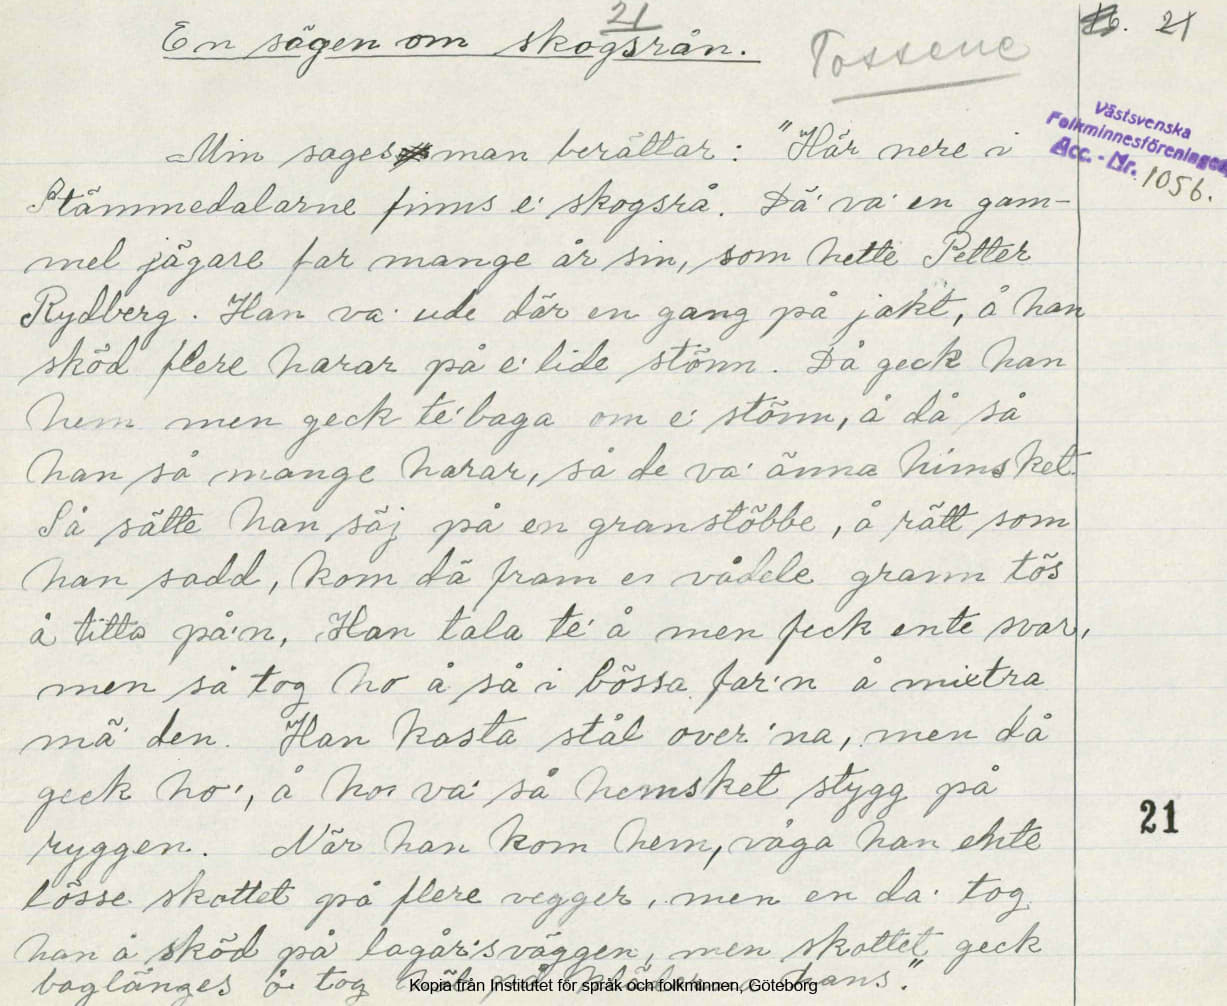 21
En sägen om skogsrån.
Tossene
16. 21
Västsvenska
Folkminnesföreningen
Acc. - Nr. 1056.
Min sagesman berättar: "Här nere i
Stämmedalarne finns e' skogsrå. Dä' va' en gam-
mel jägare far mange år sin, som hette Petter
Rydberg. Han va' ude där en gang på jakt, å han
sköd flere harar på e' lide stönn. Då geck han
hem men geck te'baga om e' stönn, å då så
han så mange harar, så de va' änna himsket.
Så sätte han säj på en granstöbbe, å rätt som
han sadd, kom dä fram ei vådele grann tös
å titta på'n, Han tala te' å men feck ente svar,
men så tog ho å så i bössa far'n å mixtra
mä' den. Han kasta stål over'na, men då
geck ho', å hoi va' så hemsket stygg på
ryggen. När han kom hem, våga han ente
lösse skottet på flere vegger, men en da' tog
han å sköd på lagår'sväggen, men skottet geck
baglänges å tog hans."
21
Kopia från Institutet för språk och folkminnen, Göteborg